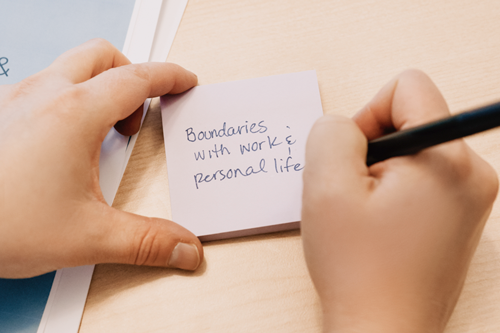 &
Boundaries
with work &
personal life